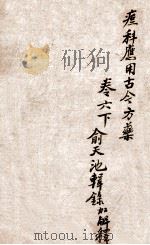 痧科應用古今方藥
卷六下 俞天池輯錄加解釋